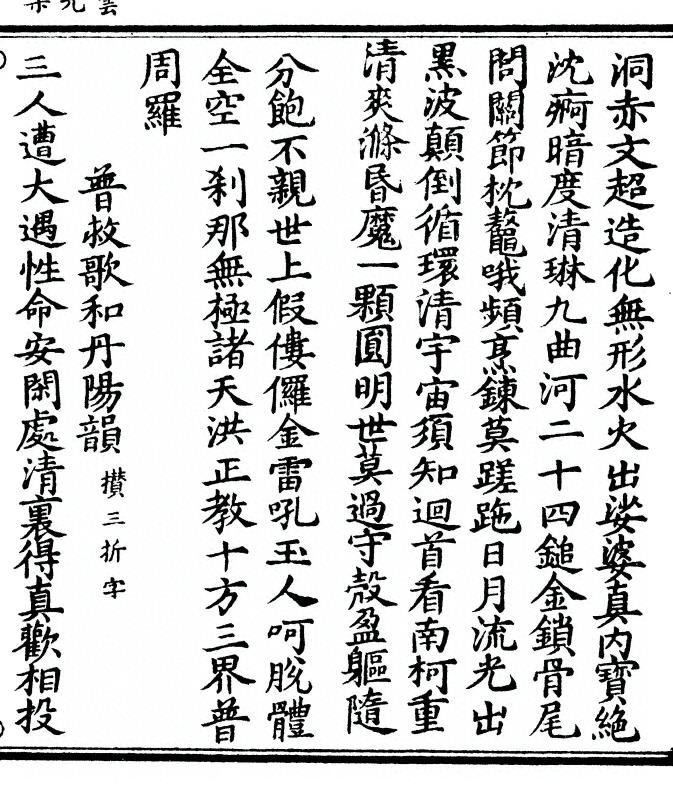 洞赤文超造化無形水火出娑婆真内寶絶
沈痾暗度清琳九曲河二十四鎚金鎖骨尾
閭關節枕鼇哦頻烹鍊莫蹉跎日月流光出
黒波顛倒循環清宇宙須知迴首看南柯重
清爽滌昏魔一顆圓明世莫過守殼盈軀隨
分飽不親世上假僂儸金雷吼玉人呵脫體
全空一刹那無極諸天洪正教十方三界普
周羅
普救歌和丹陽韻 攅三折字
三人遭大遇性命安閑處清裏得真歡相投